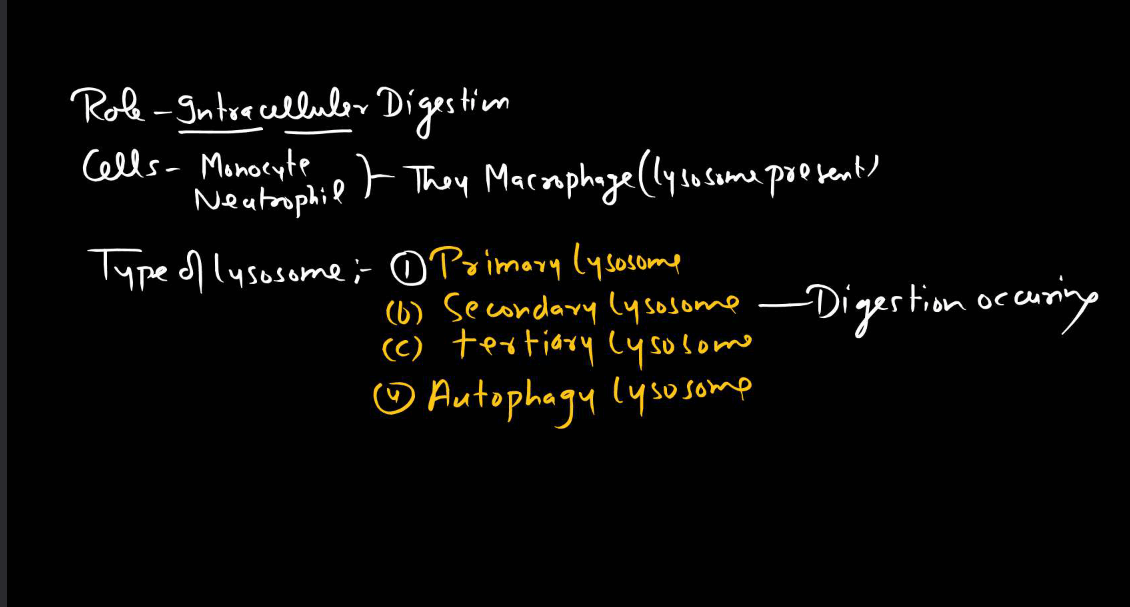 Role - Intracellular Digestion
Cells - Monocyte
Neutrophil } - They Macrophage (lysosome present)
Type of lysosome ;- ① Primary lysosome
(b) Secondary lysosome — Digestion occuring
(c) tertiary lysosome
④ Autophagy lysosome